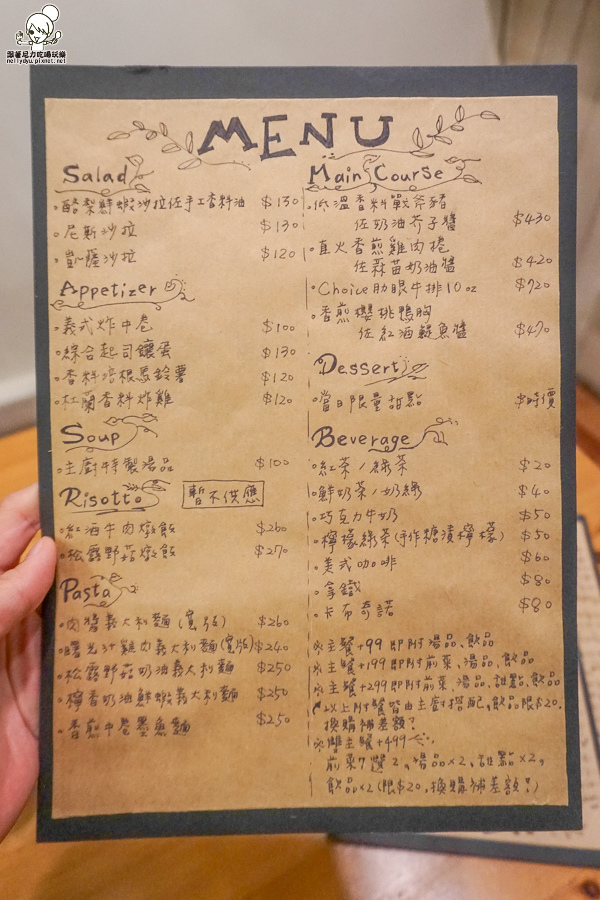 跟著尼力吃喝玩樂
nellydyu.pixnet.net
MENU
Salad
酪梨鮮蝦沙拉佐手工香料油 $130
尼斯沙拉 $130
凱薩沙拉 $120
Appetizer
義式炸中卷 $100
綜合起司鑲蛋 $130
香料培根馬鈴薯 $120
杜蘭香料炸雞 $120
Soup
主廚特製湯品 $100
Risotto 暫不供應
紅酒牛肉燉飯 $260
松露野菇燉飯 $270
Pasta
肉醬義大利麵(寬版) $260
曙光汁雞肉義大利麵(寬版) $240
松露野菇奶油義大利麵 $250
檸香奶油鮮蝦義大利麵 $250
香煎中卷墨魚麵 $250
Main Course
低溫香料戰斧豬
佐奶油芥子醬 $430
直火香煎雞肉捲
佐蒜苗奶油醬 $420
Choice肋眼牛排10oz $720
香煎櫻桃鴨胸
佐紅酒鯷魚醬 $470
Dessert
當日限量甜點 $時價
Beverage
紅茶/綠茶 $20
鮮奶茶/奶綠 $40
巧克力牛奶 $50
檸檬綠茶(手作糖漬檸檬) $50
美式咖啡 $60
拿鐵 $80
卡布奇諾 $80
※主餐+99即附湯品、飲品
※主餐+199即附前菜、湯品、飲品
※主餐+299即附前菜、湯品、甜點、飲品
以上附餐皆由主廚搭配,飲品限$20.
換購補差額?
※雙主餐+499
前菜7選2,湯品×2,甜點×2,
飲品×2(限$20,換購補差額!)